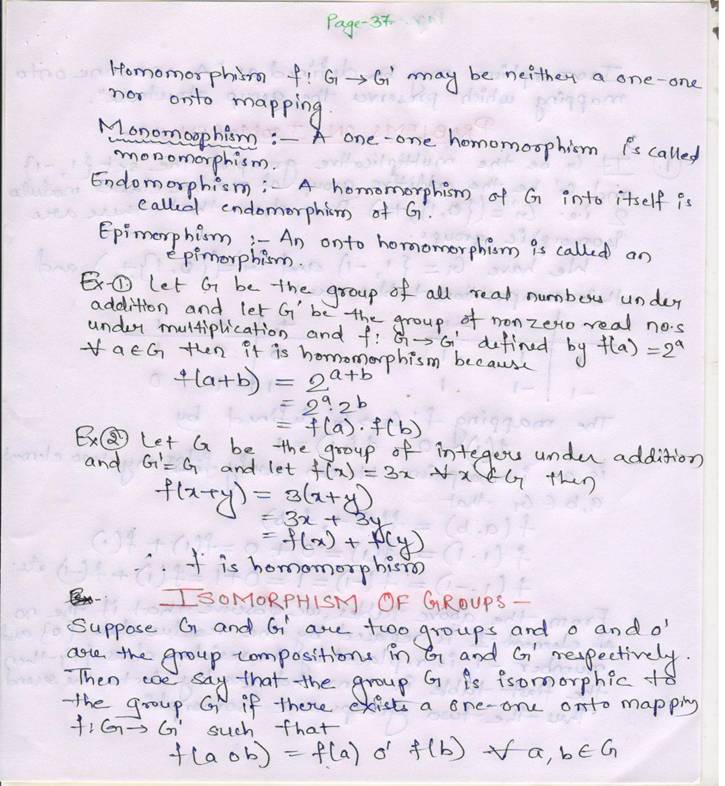 Page-37
Homomorphism f: G → G' may be neither a one-one
nor onto mapping.
Monomorphism :- A one-one homomorphism is called
monomorphism.
Endomorphism :- A homomorphism of G into itself is
called endomorphism of G.
Epimorphism :- An onto homomorphism is called an
epimorphism.
Ex-① Let G be the group of all real numbers under
addition and let G' be the group of nonzero real no.s
under multiplication and f: G → G' defined by f(a) = 2ᵃ
∀ a ∈ G then it is homomorphism because
f(a+b) = 2ᵃ⁺ᵇ
= 2ᵃ. 2ᵇ
= f(a). f(b)
Ex② Let G be the group of integers under addition
and G'=G and let f(x) = 3x ∀ x ∈ G then
f(x+y) = 3(x+y)
= 3x + 3y
= f(x) + f(y)
∴ f is homomorphism
- ISOMORPHISM OF GROUPS -
Suppose G and G' are two groups and o and o'
are the group compositions in G and G' respectively.
Then we say that the group G is isomorphic to
the group G' if there exists a one-one onto mapping
f: G → G' such that
f(a o b) = f(a) o' f(b) ∀ a, b ∈ G